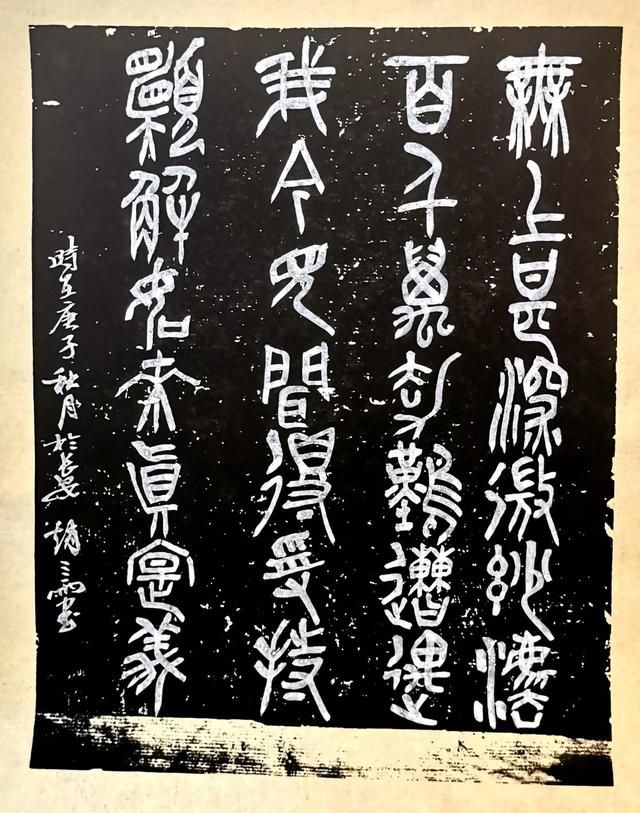 無上甚深微妙灋
百千萬劫難遭遇
我今見聞得受持
願解如來眞寔義
時在庚子秋月於長安 趙書